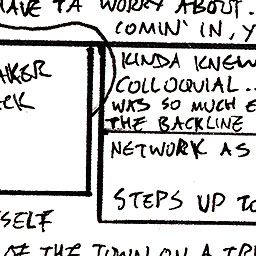 HAVE TA WORRY ABOUT.
COMIN' IN, Y
AKER
CK
KINDA KNEW
COLLOQUIAL..
WAS SO MUCH E
THE BACKLINE
NETWORK AS
STEPS UP TO
SELF
OF THE TOWN ON A TRI